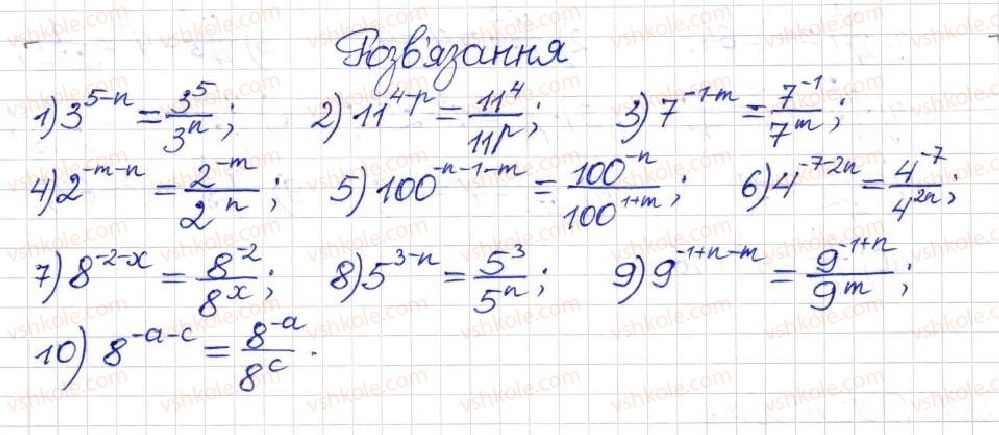 Розв'язання
1) 3^{5-n} = \frac{3^5}{3^n}; 2) 11^{4-p} = \frac{11^4}{11^p}; 3) 7^{-1-m} = \frac{7^{-1}}{7^m};
4) 2^{-m-n} = \frac{2^{-m}}{2^n}; 5) 100^{-n-1-m} = \frac{100^{-n}}{100^{1+m}}; 6) 4^{-7-2n} = \frac{4^{-7}}{4^{2n}};
7) 8^{-2-x} = \frac{8^{-2}}{8^x}; 8) 5^{3-n} = \frac{5^3}{5^n}; 9) 9^{-1+n-m} = \frac{9^{-1+n}}{9^m};
10) 8^{-a-c} = \frac{8^{-a}}{8^c}.